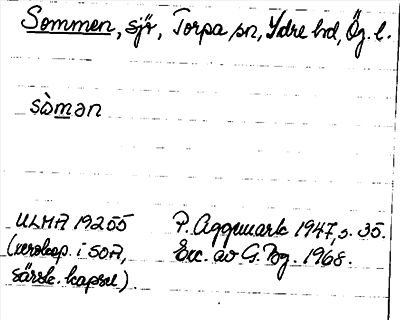 Sommen, sjö, Torpa sn, Ydre hd, Ög. l.
sòmən
ULMA 19255 P. Aggemark 1947, s. 35.
(xerokop. i SOA, Exc. av G. 1968.
särsk. kapsel)